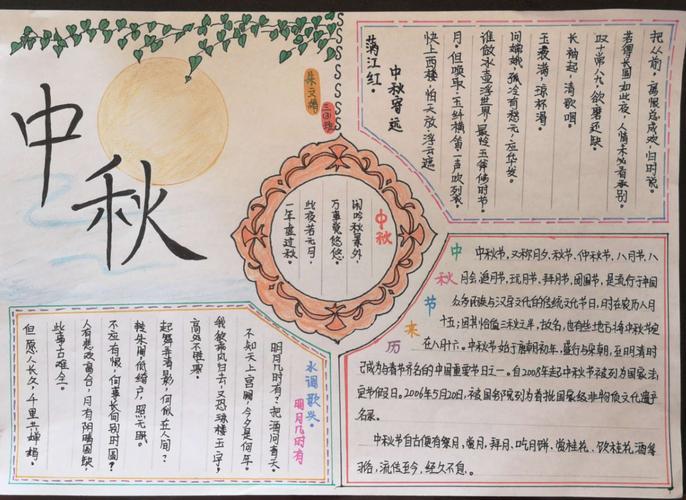 中秋
三(3)班
满江红。
中秋寄远
快上西楼,怕天放浮云遮
月。但唤取、玉纤横笛,一声吹裂。
谁做冰壶浮世界,最怜玉斧修时节。
问嫦娥,孤冷有愁无,应华发。
玉液满,琼杯滑。
长袖起,清歌咽。
叹十常八九,欲磨还缺。
若得长圆如此夜,人情未必看承别。
把从前,离恨总成欢,归时说。
中秋
闲吟秋景外,
万事觉悠悠。
此夜若无月,
一年虚过秋。
水调歌头。
明月几时有
明月几时有?把酒问青天。
不知天上宫阙,今夕是何年。
我欲乘风归去,又恐琼楼玉宇,
高处不胜寒。
起舞弄清影,何似在人间?
转朱阁,低绮户,照无眠。
不应有恨,何事长向别时圆?
人有悲欢离合,月有阴晴圆缺,
此事古难全。
但愿人长久,千里共婵娟。
中秋节来历
中秋节,又称月夕、秋节、仲秋节、八月节、八
月会、追月节、玩月节、拜月节、团圆节,是流行于中国
众多民族与汉字文化的传统文化节日,时在农历八月
十五;因其恰值三秋之半,故名,也有些地方将中秋节定
在八月十六。中秋节始于唐朝初年,盛行与宋朝,至明清时
已成为与春节齐名的中国重要节日之一。自2008年起中秋节被列为国家法
定节假日。2006年5月20日,被国务院列为首批国家级非物质文化遗产
名录。
中秋节自古便有祭月、赏月、拜月、吃月饼、赏桂花、饮桂花酒等
习俗,流传至今,经久不息。